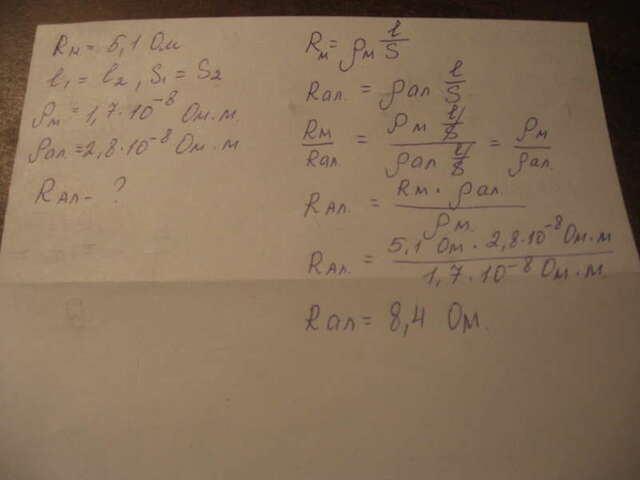 Rм = 5,1 Ом
l₁ = l₂, S₁ = S₂
ρм = 1,7·10⁻⁸ Ом·м.
ρал = 2,8·10⁻⁸ Ом·м
Rал - ?
Rм = ρм l/S
Rал. = ρал l/S
Rм/Rал. = (ρм l/S)/(ρал l/S) = ρм/ρал.
Rал. = (Rм · ρал.)/ρм.
Rал. = (5,1 Ом · 2,8·10⁻⁸ Ом·м)/(1,7·10⁻⁸ Ом·м.)
Rал = 8,4 Ом.